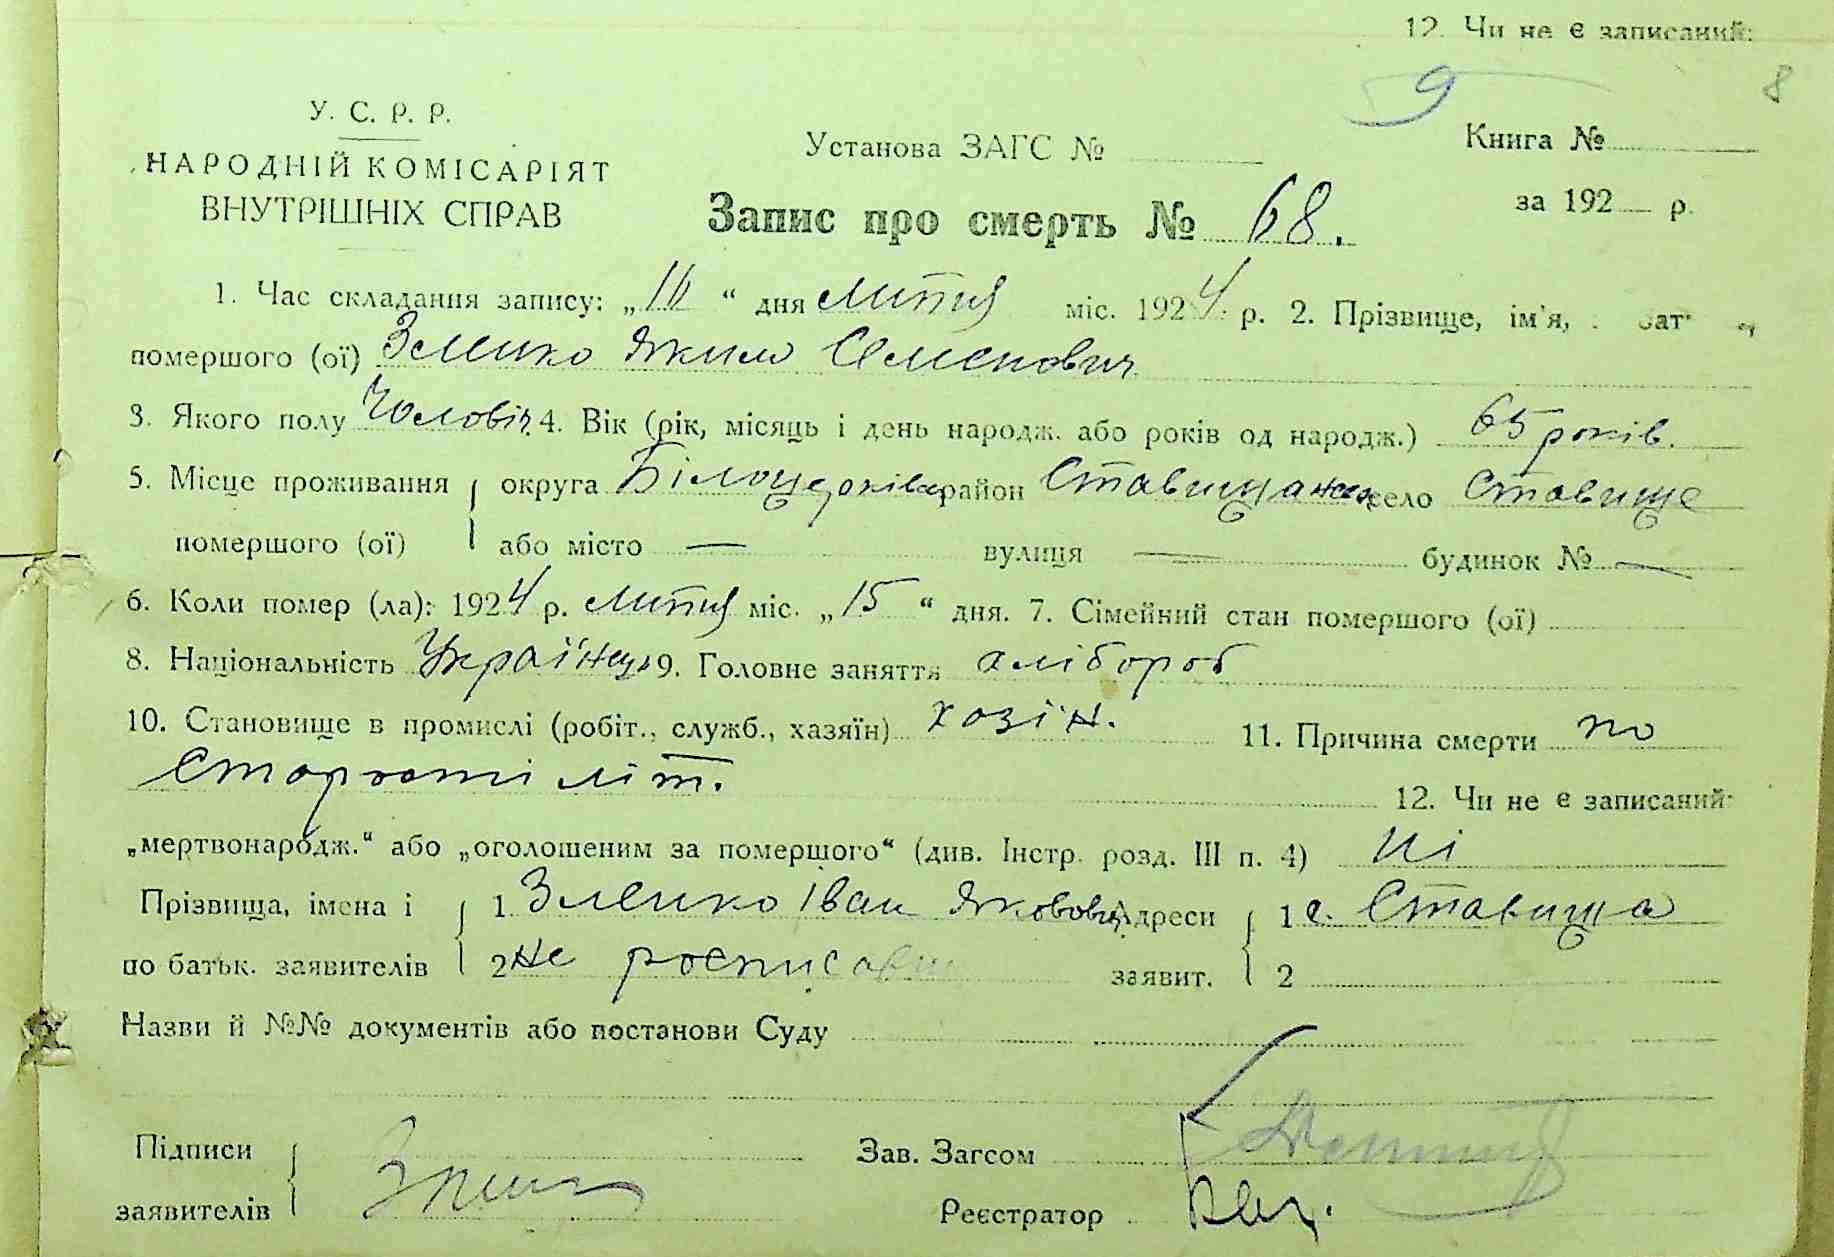 12. Чи не є записаний:
9
8
У. С. Р. Р.
НАРОДНІЙ КОМІСАРІЯТ
ВНУТРІШНІХ СПРАВ
Установа ЗАГС №
Книга №
за 192 р.
Запис про смерть № 68.
1. Час складання запису: „16“ дня липня міс. 1924 р. 2. Прізвище, ім'я, бат
помершого (ої) Зленко Яким Семенович
3. Якого полу чоловіч 4. Вік (рік, місяць і день народж. або років од народж.) 65 років.
5. Місце проживання { округа Білоцерківс район Ставищанськ село Ставище
помершого (ої) або місто — вулиця — будинок № —
6. Коли помер (ла): 1924 р. липня міс. „15“ дня. 7. Сімейний стан помершого (ої)
8. Національність Українець 9. Головне заняття хлібороб
10. Становище в промислі (робіт., служб., хазяїн) хозїн. 11. Причина смерти по
старости літ.
12. Чи не є записаний:
„мертвонародж.“ або „оголошеним за помершого“ (див. Інстр. розд. III п. 4) ні
Прізвища, імена і { 1 Зленко Іван Якович Адреси { 1 с. Ставища
по батьк. заявителів 2 не росписавш заявит. 2
Назви й №№ документів або постанови Суду
Підписи { Зав. Загсом
заявителів Реєстратор